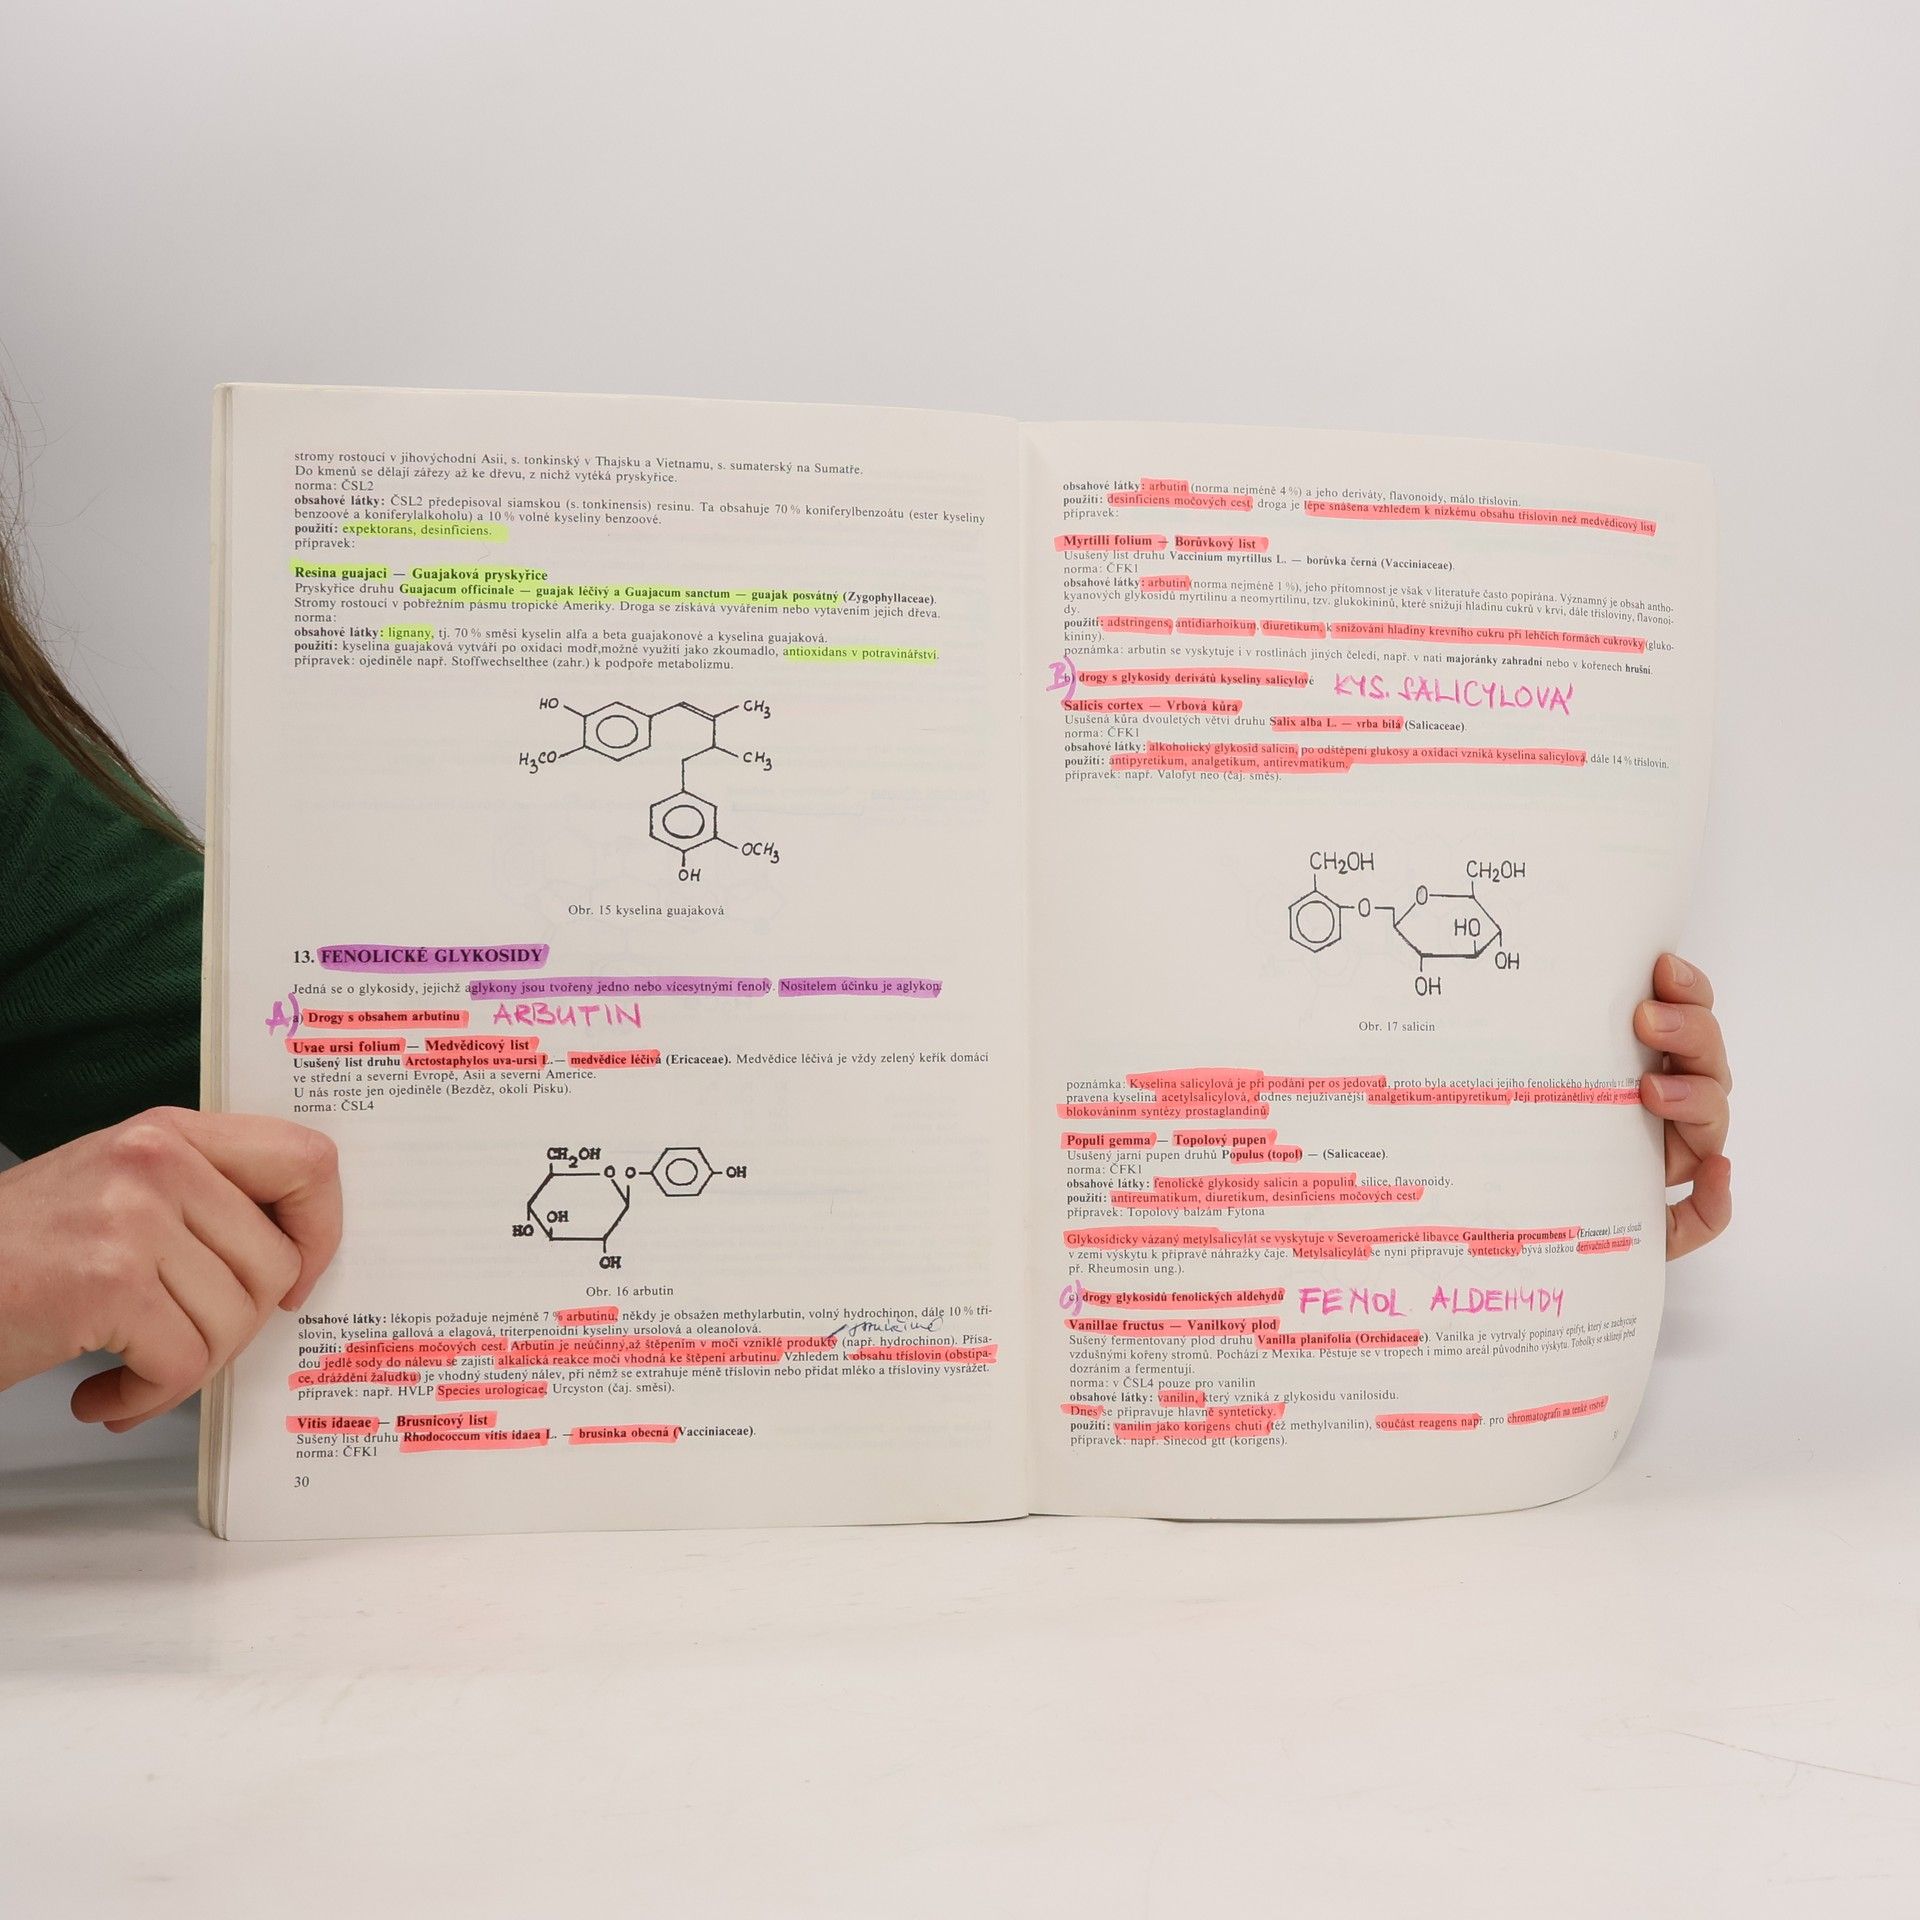 stromy rostoucí v jihovýchodní Asii, s. tonkinský v Thajsku a Vietnamu, s. sumaterský na Sumatře.
Do kmenů se dělají zářezy až ke dřevu, z nichž vytéká pryskyřice.
norma: ČSL2
obsahové látky: ČSL2 předepisoval siamskou (s. tonkinensis) resinu. Ta obsahuje 70 % koniferylbenzoátu (ester kyseliny
benzoové a koniferylalkoholu) a 10 % volné kyseliny benzoové.
použití: expektorans, desinficiens.
přípravek:
Resina guajaci — Guajaková pryskyřice
Pryskyřice druhu Guajacum officinale — guajak léčivý a Guajacum sanctum — guajak posvátný (Zygophyllaceae).
Stromy rostoucí v pobřežním pásmu tropické Ameriky. Droga se získává vyvářením nebo vytavením jejich dřeva.
norma:
obsahové látky: lignany, tj. 70 % směsi kyselin alfa a beta guajakonové a kyselina guajaková.
použití: kyselina guajaková vytváří po oxidaci modř,možné využití jako zkoumadlo, antioxidans v potravinářství.
přípravek: ojediněle např. Stoffwechselthee (zahr.) k podpoře metabolizmu.
HO
CH3
H3CO
CH3
OCH3
OH
Obr. 15 kyselina guajaková
13. FENOLICKÉ GLYKOSIDY
Jedná se o glykosidy, jejichž aglykony jsou tvořeny jedno nebo vícesytnými fenoly. Nositelem účinku je aglykon.
A) a) Drogy s obsahem arbutinu ARBUTIN
Uvae ursi folium — Medvědicový list
Usušený list druhu Arctostaphylos uva-ursi L. — medvědice léčivá (Ericaceae). Medvědice léčivá je vždy zelený keřík domácí
ve střední a severní Evropě, Asii a severní Americe.
U nás roste jen ojediněle (Bezděz, okolí Písku).
norma: ČSL4
CH2OH
O O OH
OH
HO
OH
Obr. 16 arbutin
obsahové látky: lékopis požaduje nejméně 7 % arbutinu, někdy je obsažen methylarbutin, volný hydrochinon, dále 10 % tří-
slovin, kyselina gallová a elagová, triterpenoidní kyseliny ursolová a oleanolová.
použití: desinficiens močových cest. Arbutin je neúčinný,až štěpením v moči vzniklé produkty (např. hydrochinon). Přísa-
dou jedlé sody do nálevu se zajistí alkalická reakce moči vhodná ke štěpení arbutinu. Vzhledem k obsahu tříslovin (obstipa-
ce, dráždění žaludku) je vhodný studený nálev, při němž se extrahuje méně tříslovin nebo přidat mléko a třísloviny vysrážet.
přípravek: např. HVLP Species urologicae, Urcyston (čaj. směsi).
Vitis idaeae — Brusnicový list
Sušený list druhu Rhodococcum vitis idaea L. — brusinka obecná (Vacciniaceae).
norma: ČFK1
30
obsahové látky: arbutin (norma nejméně 4 %) a jeho deriváty, flavonoidy, málo tříslovin.
použití: desinficiens močových cest, droga je lépe snášena vzhledem k nízkému obsahu tříslovin než medvědicový list.
přípravek:
Myrtilli folium — Borůvkový list
Usušený list druhu Vaccinium myrtillus L. — borůvka černá (Vacciniaceae).
norma: ČFK1
obsahové látky: arbutin (norma nejméně 1 %), jeho přítomnost je však v literatuře často popírána. Významný je obsah antho-
kyanových glykosidů myrtilinu a neomyrtilinu, tzv. glukokininů, které snižují hladinu cukrů v krvi, dále třísloviny, flavonoi-
dy.
použití: adstringens, antidiarhoikum, diuretikum, k snižování hladiny krevního cukru při lehčích formách cukrovky (gluko-
kininy).
poznámka: arbutin se vyskytuje i v rostlinách jiných čeledí, např. v nati majoránky zahradní nebo v kořenech hrušní.
B) b) drogy s glykosidy derivátů kyseliny salicylové KYS. SALICYLOVÁ
Salicis cortex — Vrbová kůra
Usušená kůra dvouletých větví druhu Salix alba L. — vrba bílá (Salicaceae).
norma: ČFK1
obsahové látky: alkoholický glykosid salicin, po odštěpení glukosy a oxidaci vzniká kyselina salicylová, dále 14 % tříslovin.
použití: antipyretikum, analgetikum, antirevmatikum.
přípravek: např. Valofyt neo (čaj. směs).
CH2OH
CH2OH
O
O
HO
OH
OH
Obr. 17 salicin
poznámka: Kyselina salicylová je při podání per os jedovatá, proto byla acetylací jejího fenolického hydroxylu
pravena kyselina acetylsalicylová, dodnes nejužívanější analgetikum-antipyretikum. Její protizánětlivý efekt je
blokováním syntézy prostaglandinů.
Populi gemma — Topolový pupen
Usušený jarní pupen druhů Populus (topol) — (Salicaceae).
norma: ČFK1
obsahové látky: fenolické glykosidy salicin a populin, silice, flavonoidy.
použití: antireumatikum, diuretikum, desinficiens močových cest.
přípravek: Topolový balzám Fytona
Glykosidicky vázaný metylsalicylát se vyskytuje v Severoamerické libavce Gaultheria procumbens L (Ericaceae). Listy slouží
v zemi výskytu k přípravě náhražky čaje. Metylsalicylát se nyní připravuje synteticky, bývá složkou derivačních mazání (na-
př. Rheumosin ung.).
C) c) drogy glykosidů fenolických aldehydů FENOL. ALDEHYDY
Vanillae fructus — Vanilkový plod
Sušený fermentovaný plod druhu Vanilla planifolia (Orchidaceae). Vanilka je vytrvalý popínavý epifyt, který se zachycuje
vzdušnými kořeny stromů. Pochází z Mexika. Pěstuje se v tropech i mimo areál původního výskytu. Tobolky se sklízejí před
dozráním a fermentují.
norma: v ČSL4 pouze pro vanilin
obsahové látky: vanilin, který vzniká z glykosidu vanilosidu.
Dnes se připravuje hlavně synteticky.
použití: vanilin jako korigens chuti (též methylvanilin), součást reagens např. pro chromatografii na tenké vrstvě.
přípravek: např. Sinecod gtt (korigens).